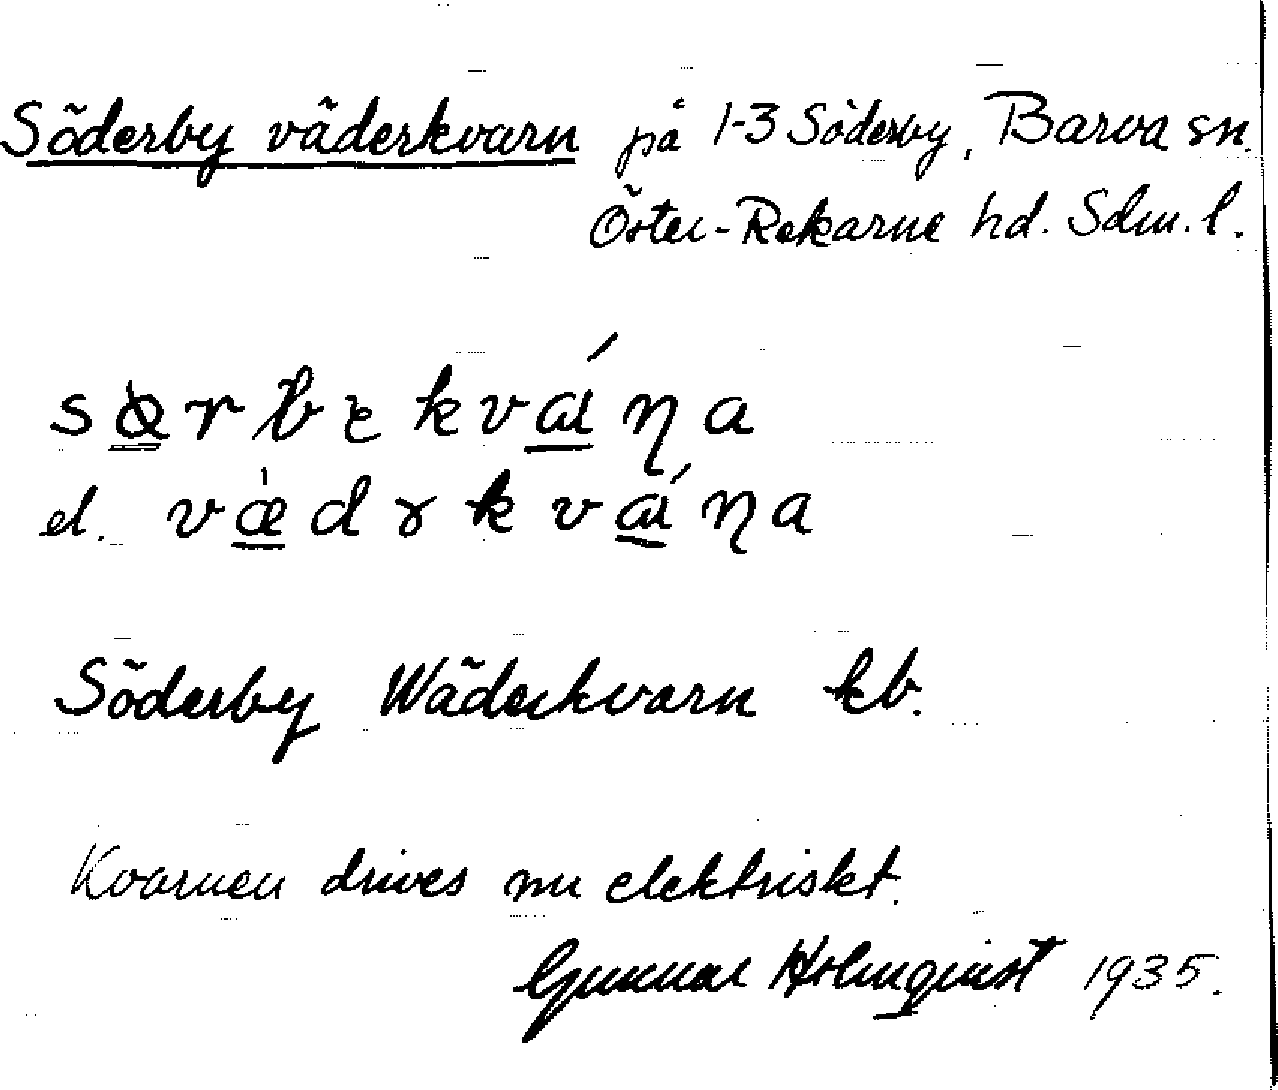 Söderby väderkvarn på 1-3 Söderby, Barva sn.
Öster-Rekarne hd. Sdm. l.
el.
Söderby Wäderkvarn kb.
Kvarnen drives nu elektriskt.
Gunnar Holmquist 1935.